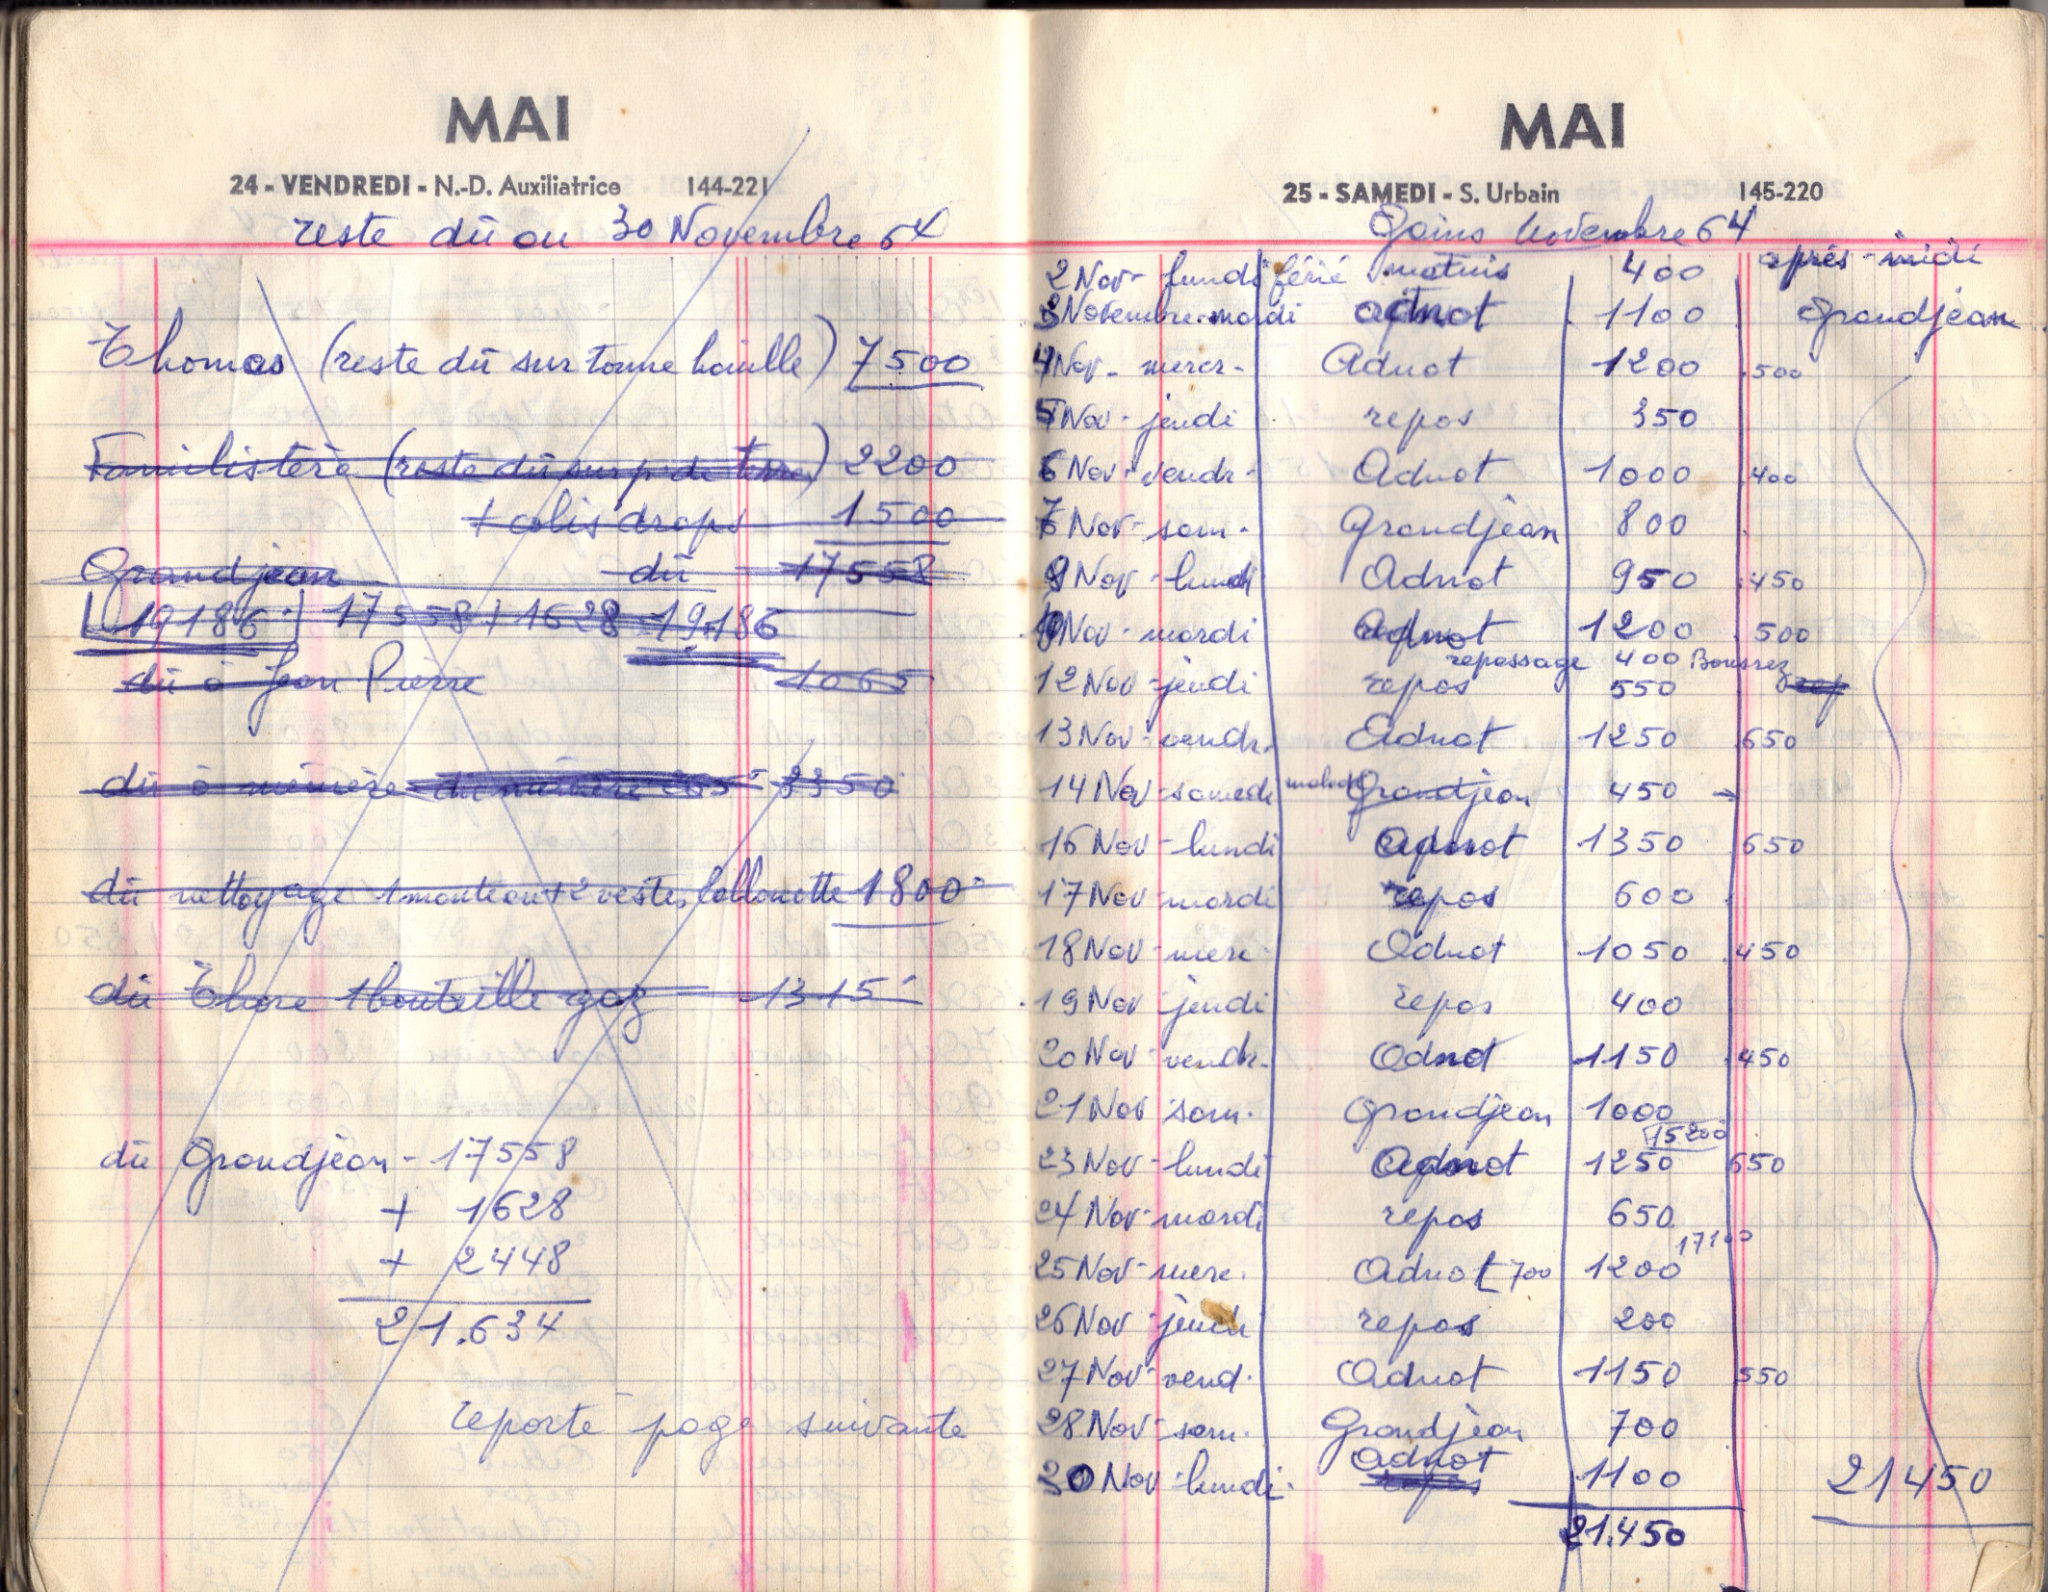 MAI
24 - VENDREDI - N.-D. Auxiliatrice 144-221
reste dû au 30 Novembre 64
Thomas (reste dû sur tonne houille) 7500
Familistère (reste dû sur p. de terre) 2200
+ colis draps 1500
Grandjean dû 17558
19186 17558 + 1628 19.186
dû à Jean Pierre 1065
dû à mémère 3350
dû nettoyage 1 manteau + 2 vestes 1800
dû Thore 1 bouteille gaz 1315
dû Grandjean - 17558
+ 1628
+ 2448
21.634
reporté page suivante
MAI
25 - SAMEDI - S. Urbain 145-220
Gains Novembre 64
2 Nov - lundi férié matinis 400 après-midi
3 Novembre - mardi Adnot 1100 Grandjean
4 Nov - mercr - Adnot 1200 500
5 Nov - jeudi repos 350
6 Nov - vendr - Adnot 1000 400
7 Nov - sam - Grandjean 800
9 Nov - lundi Adnot 950 450
10 Nov - mardi Adnot 1200 500
repassage 400
12 Nov - jeudi repos 550
13 Nov - vendr. Adnot 1250 650
14 Nov - samedi malade Grandjean 450
16 Nov - lundi Adnot 1350 650
17 Nov - mardi repos 600
18 Nov - merc - Adnot 1050 450
19 Nov - jeudi repos 400
20 Nov - vendr - Adnot 1150 450
21 Nov sam. Grandjean 1000
15200
23 Nov - lundi Adnot 1250 650
24 Nov - mardi repos 650
17100
25 Nov - merc. Adnot 700 1200
26 Nov - jeudi repos 200
27 Nov - vend. Adnot 1150 550
28 Nov - sam. Grandjean 700
Adnot
30 Nov - lundi - repos 1100 21450
21.450